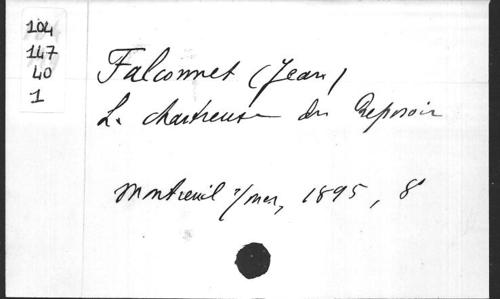 104
147
40
1
Falconnet (Jean)
La chartreuse du Reposoir
Montreuil s/mer, 1895, 8°